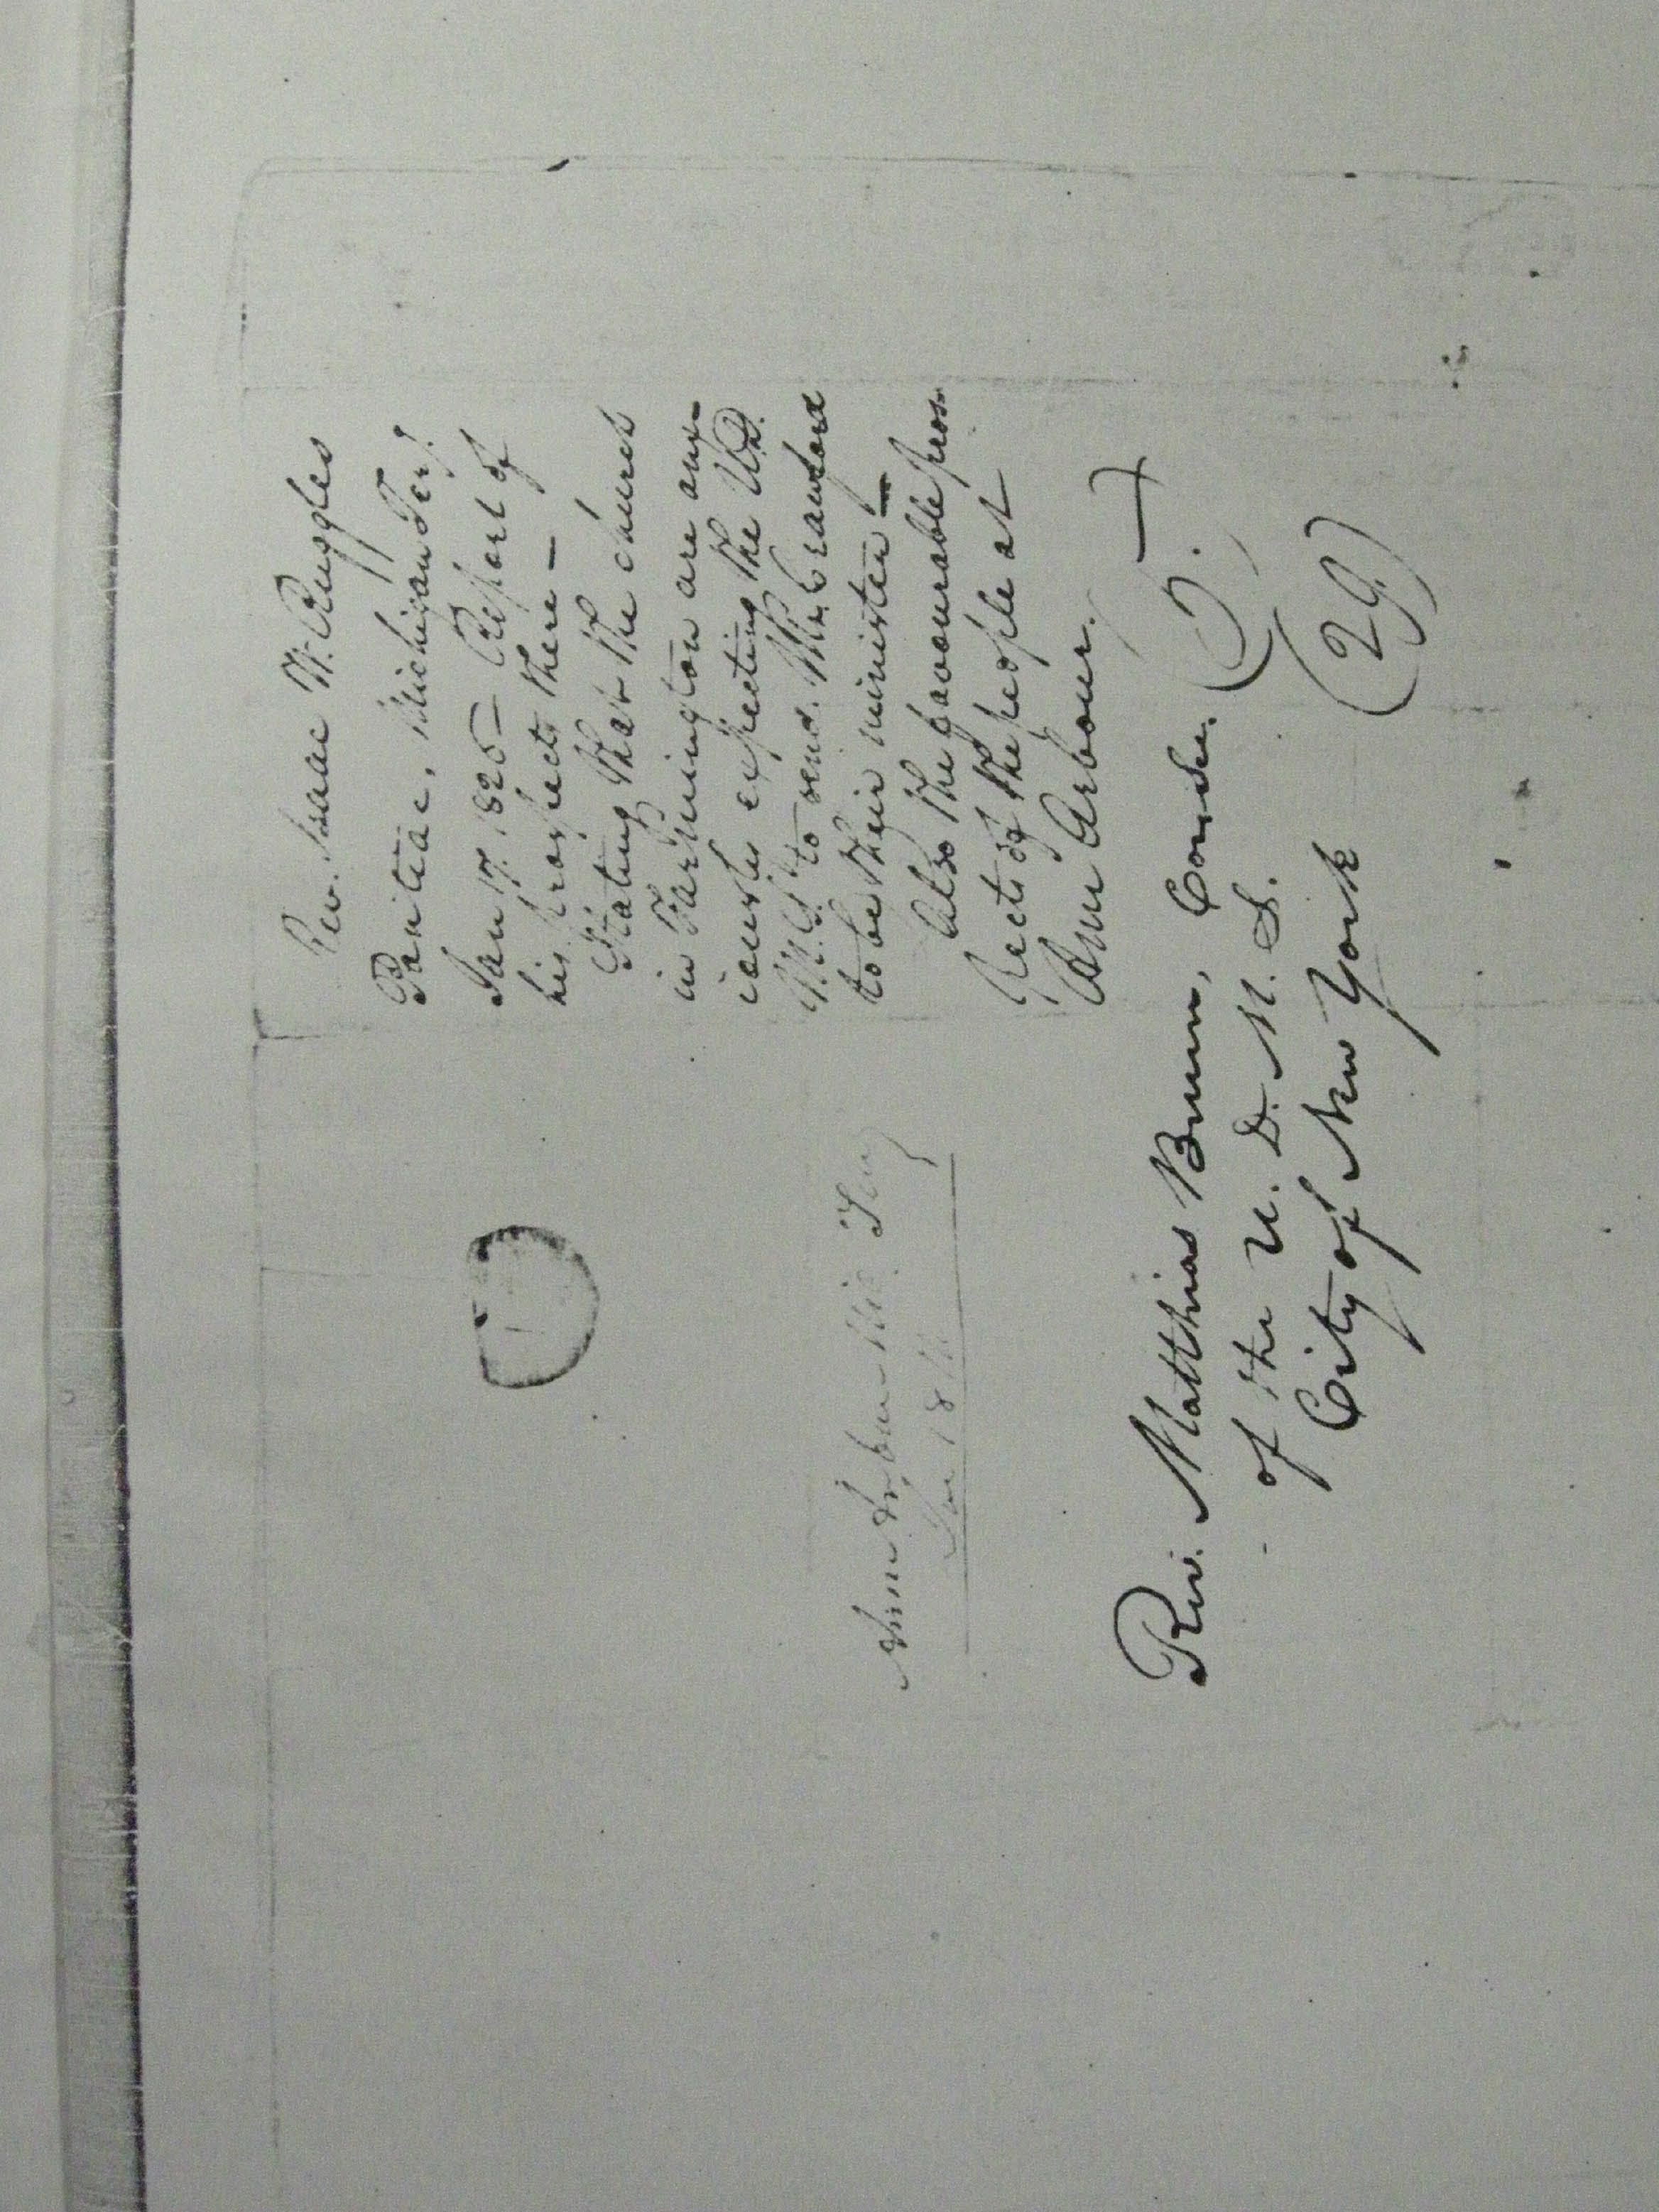 Rev. Isaac W. Ruggles
Pontiac, Michigan Ter.
Jan 17. 1825 — Report of
his prospects there —
Stating that the church
in Farmington are anx-
iously expecting the U.D.
M.S. to send. Mr. Crawford
to be their minister —
Also the favourable pros-
pects of the people at
Ann Arbour.
Ann Arbour Mic. Ter
Jan 18th
Rev. Matthias Bruen,
of the U. D. M. S.
City of New York
(29.)